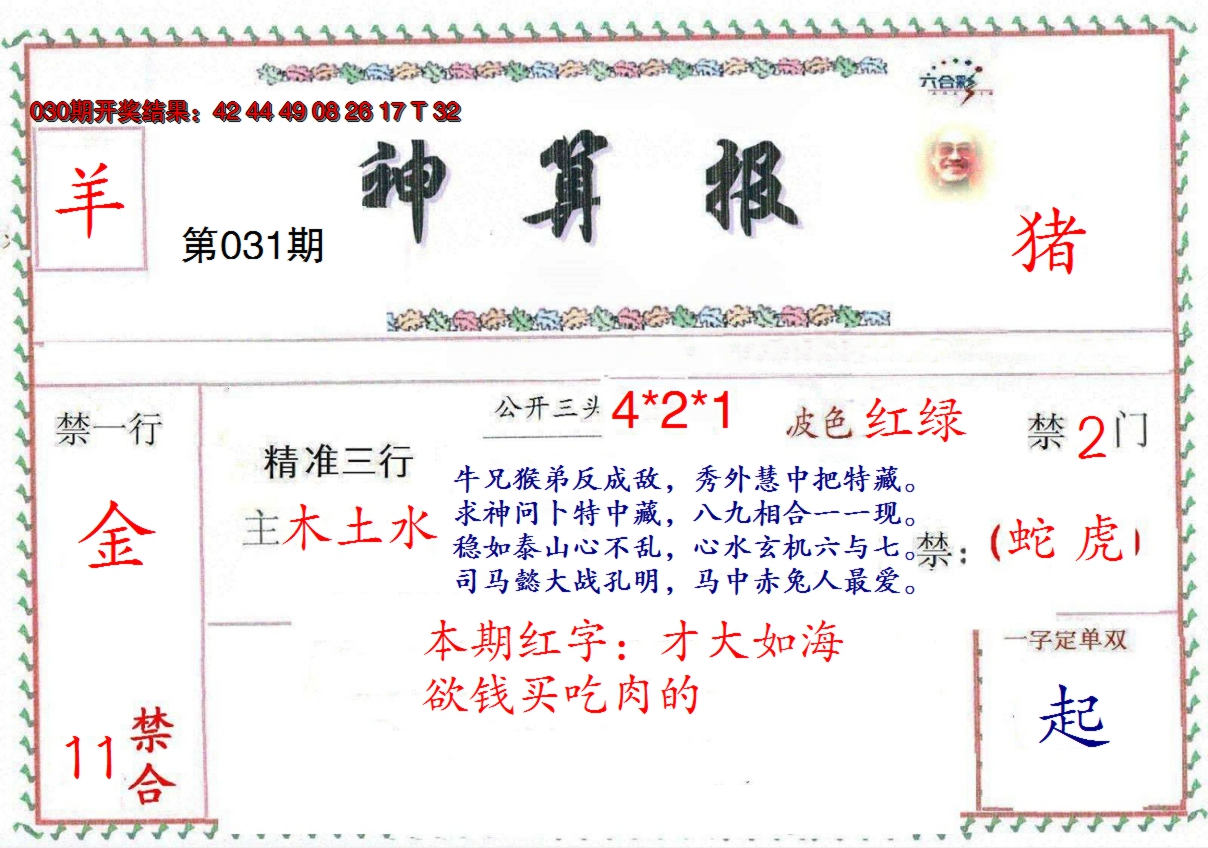 六合彩
030期开奖结果：42 44 49 08 26 17 T 32
羊
神算报
第031期
猪
禁一行
金
11
禁合
精准三行
主木土水
公开三头 4*2*1
波色 红绿
禁2门
牛兄猴弟反成敌，秀外慧中把特藏。
求神问卜特中藏，八九相合一一现。
稳如泰山心不乱，心水玄机六与七。
司马懿大战孔明，马中赤兔人最爱。
禁：（蛇 虎）
本期红字：才大如海
欲钱买吃肉的
一字定单双
起